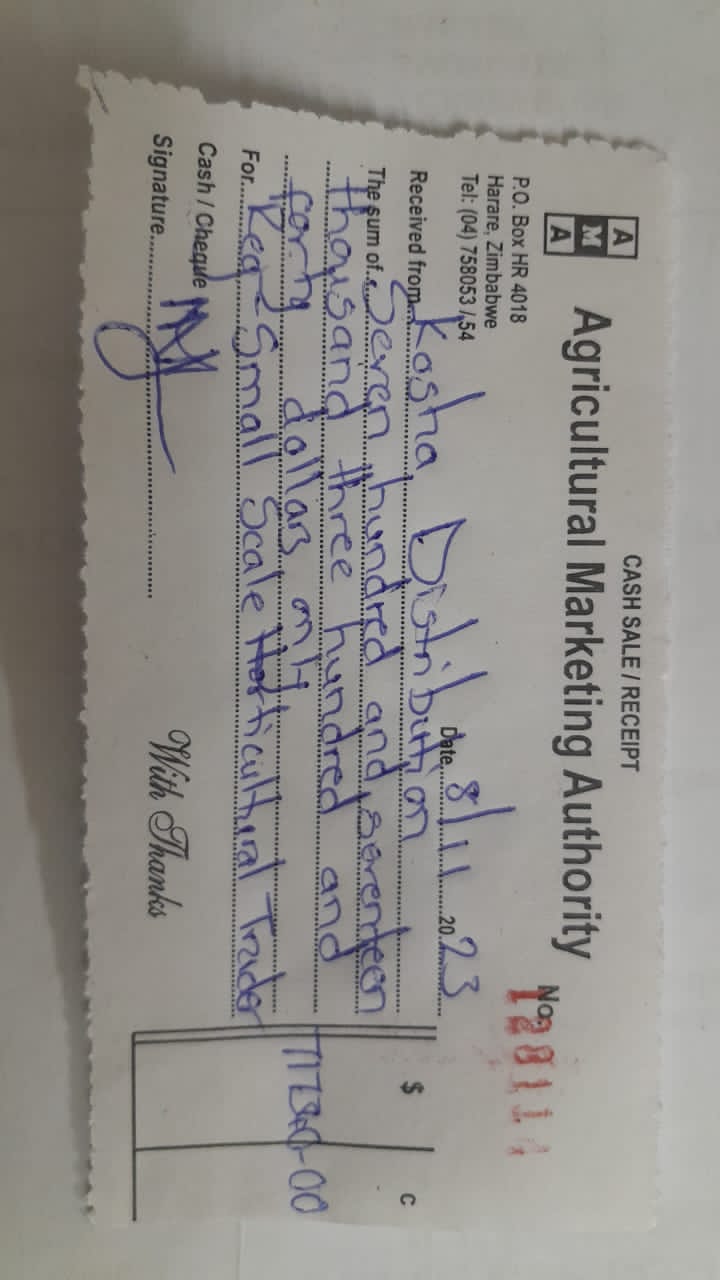 CASH SALE / RECEIPT
A
M
A
Agricultural Marketing Authority
P.O. Box HR 4018
Harare, Zimbabwe
Tel: (04) 758053 / 54
No.
Date 8/11 2023
Received from Kosha Distribution
The sum of Seven hundred and seventeen
thousand three hundred and
forty dollars only
For Reg - Small Scale Horticultural Trader
$ c
717340-00
Cash / Cheque
Signature
With Thanks